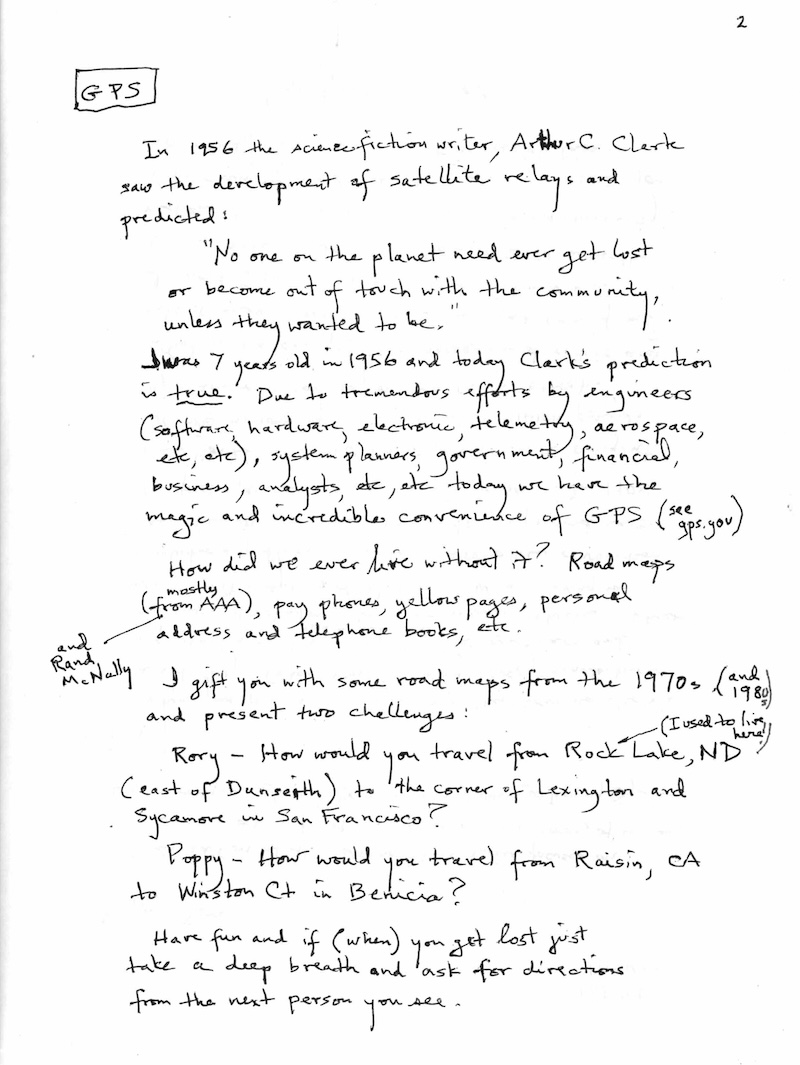 2
GPS
In 1956 the science fiction writer, Arthur C. Clark
saw the development of satellite relays and
predicted:
"No one on the planet need ever get lost
or become out of touch with the community,
unless they wanted to be."
I was 7 years old in 1956 and today Clark's prediction
is true. Due to tremendous efforts by engineers
(software, hardware, electronic, telemetry, aerospace,
etc, etc), system planners, government, financial,
business, analysts, etc, etc today we have the
magic and incredible convenience of GPS (see
gps.gov)
How did we ever live without it? Road maps
mostly
(from AAA), pay phones, yellow pages, personal
address and telephone books, etc.
and
Rand
McNally
I gift you with some road maps from the 1970s (and
1980s)
and present two challenges:
(I used to live
here!)
Rory – How would you travel from Rock Lake, ND
(east of Dunseith) to the corner of Lexington and
Sycamore in San Francisco?
Poppy – How would you travel from Raisin, CA
to Winston Ct in Benicia?
Have fun and if (when) you get lost just
take a deep breath and ask for directions
from the next person you see.